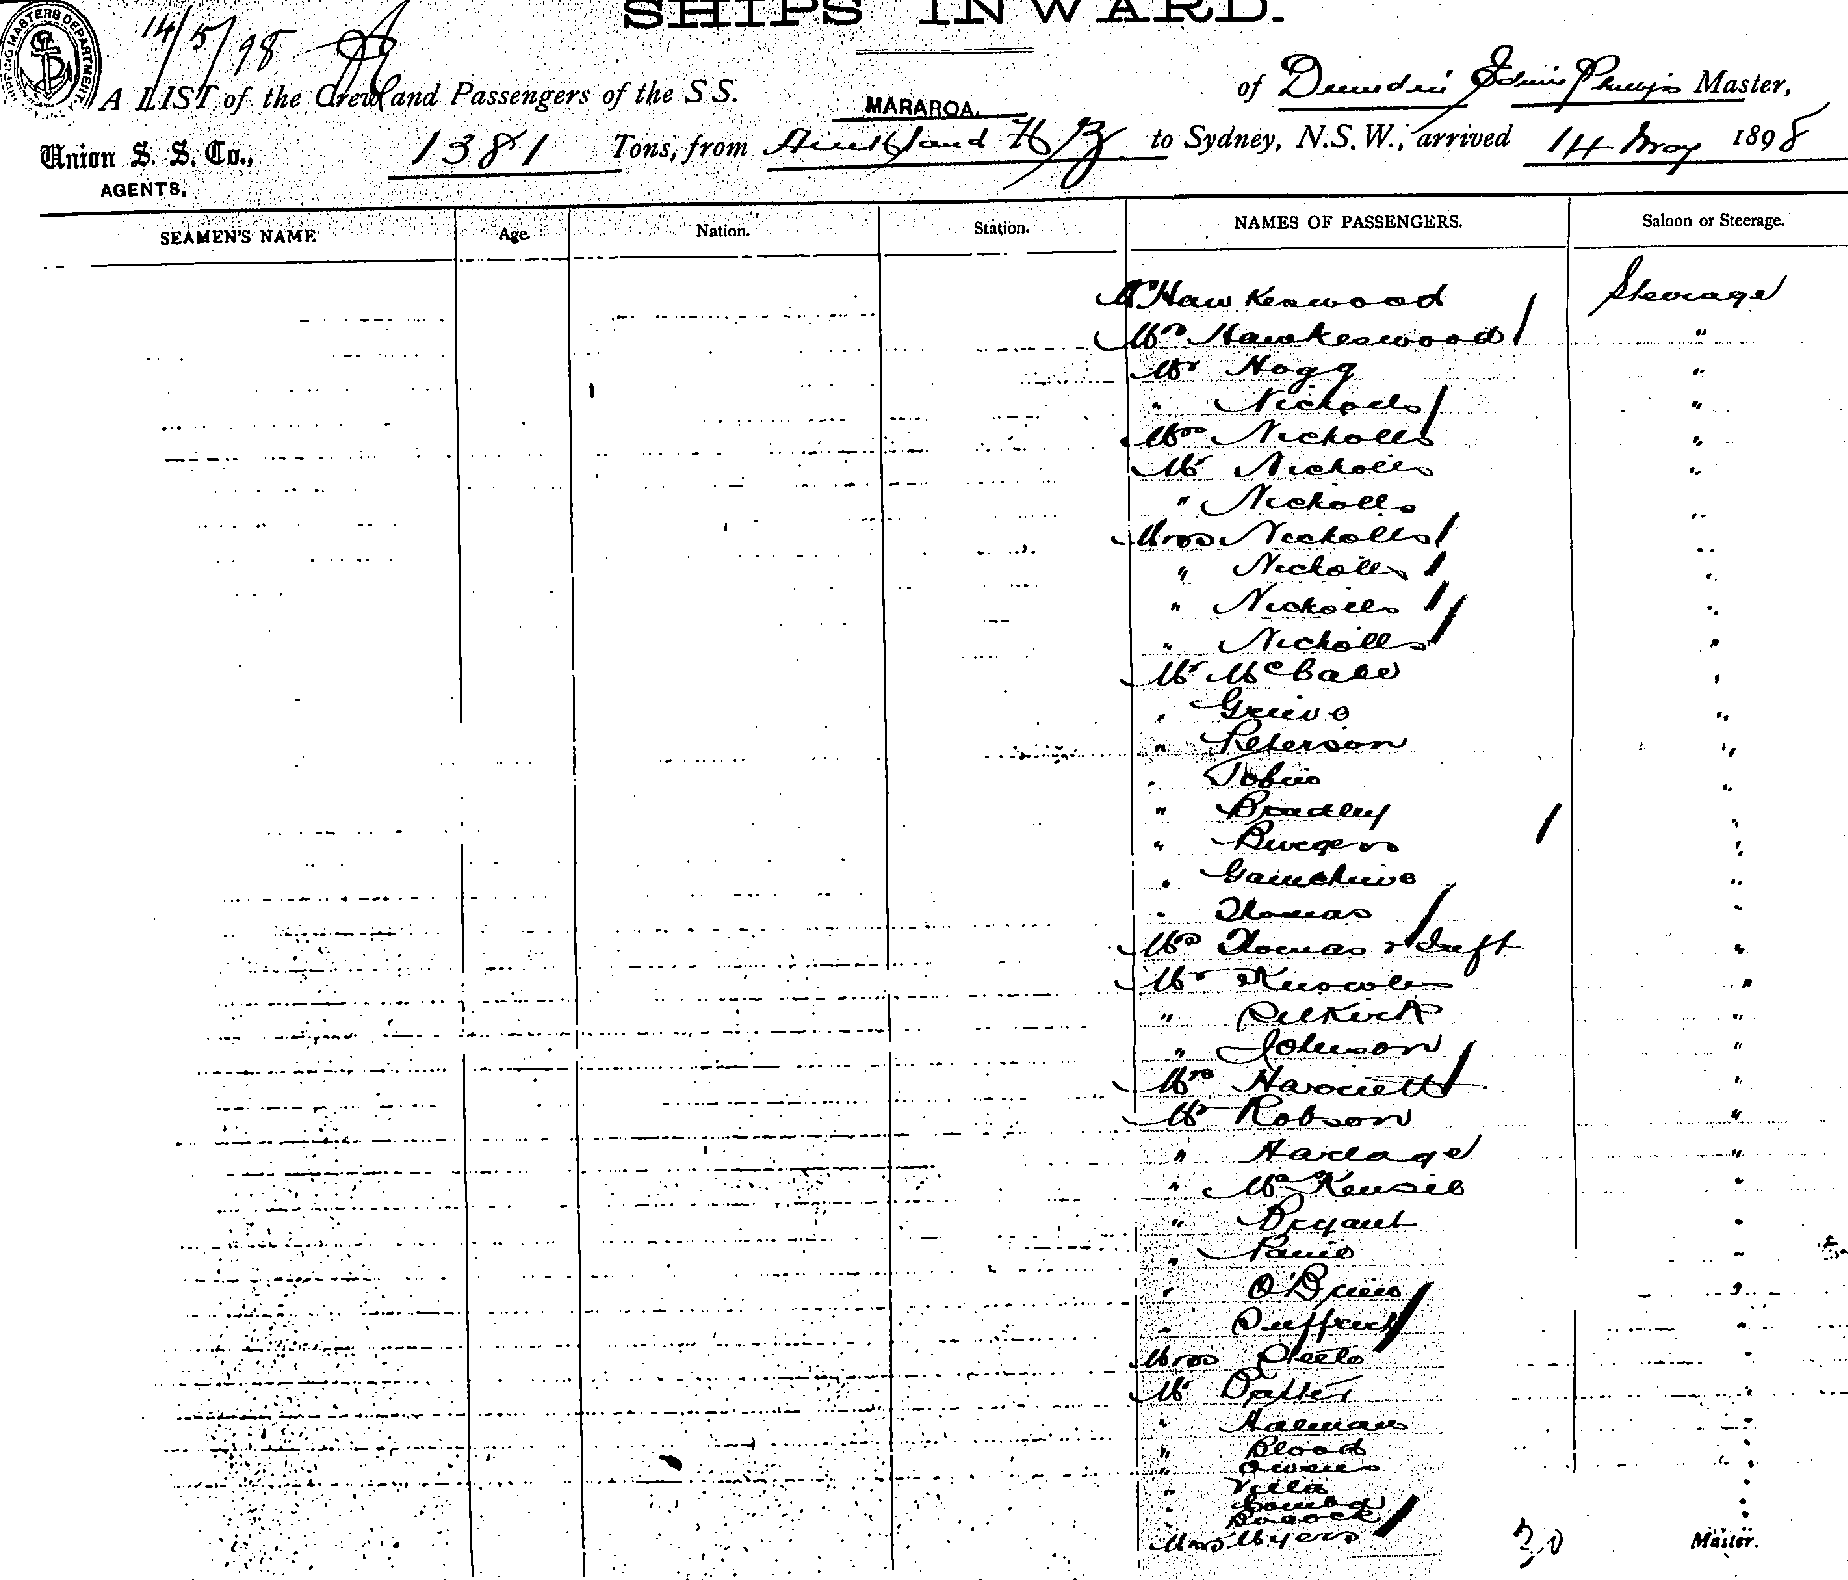 SHIPS INWARD.
SHIPPING MASTERS DEPARTMENT
14/5/98
A LIST of the Crew and Passengers of the SS. MARAROA. of Dunedin Edwin Phillips Master,
Union S. S. Co., 1381 Tons, from Auckland N Z to Sydney, N.S.W., arrived 14 May 1898
AGENTS,
SEAMEN'S NAME Age. Nation. Station. NAMES OF PASSENGERS. Saloon or Steerage.
Mr Hawkeswood Steerage
Mrs Hawkeswood "
Mr Hogg "
" Nicholls "
Mrs Nicholls "
Mr Nicholls "
" Nicholls "
Miss Nicholls "
" Nicholls "
" Nicholls "
" Nicholls "
Mr McCabe "
" Grieve "
" Peterson "
" Tobin "
" Bradley "
" Burgess "
" "
" Thomas "
Mrs Thomas & Inft "
Mr "
" Selkirk "
" Johnson "
Mrs Harriett "
Mr Robson "
" Harlage "
" McKensie "
" Bryant "
" "
" O'Brien "
" "
Miss Steele "
Mr Potter "
" Halman "
" Blood "
" Owens "
" Villa "
" "
" Bocock "
Miss Myers
30 Master.